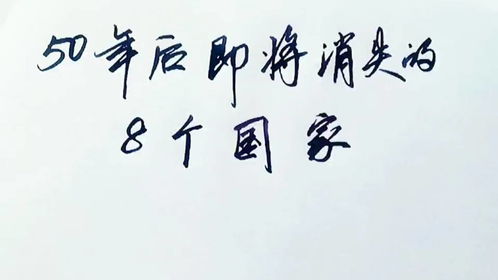 50年后即将消失的
8个国家